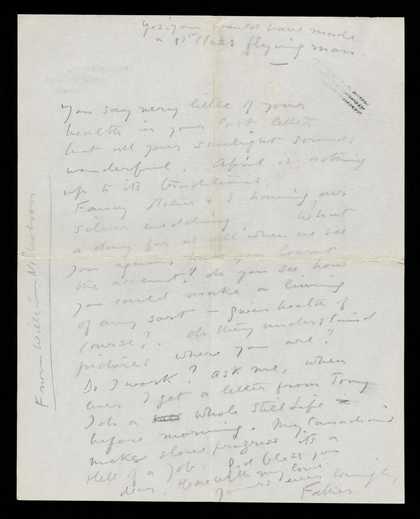 Yes you would have made
a 1st class flying man.
You say very little of your
health in your last letter
but all your sunlight sounds
wonderful. April is nothing
up to its traditions.
Fancy & I having our
silver wedding. What
a day for us all when we see
you again
the do you see how
you could make a living
of any sort — given health of
course? Do they understand
pictures where you are?
Do I work? Ask me, when
ever I get a letter from Tony
I do a whole Still Life
before morning. My Canadian
makes slow progress its a
Hell of a job. God bless you
dear. Here with my love
yours ever lovingly,
Father
From William Nicholson